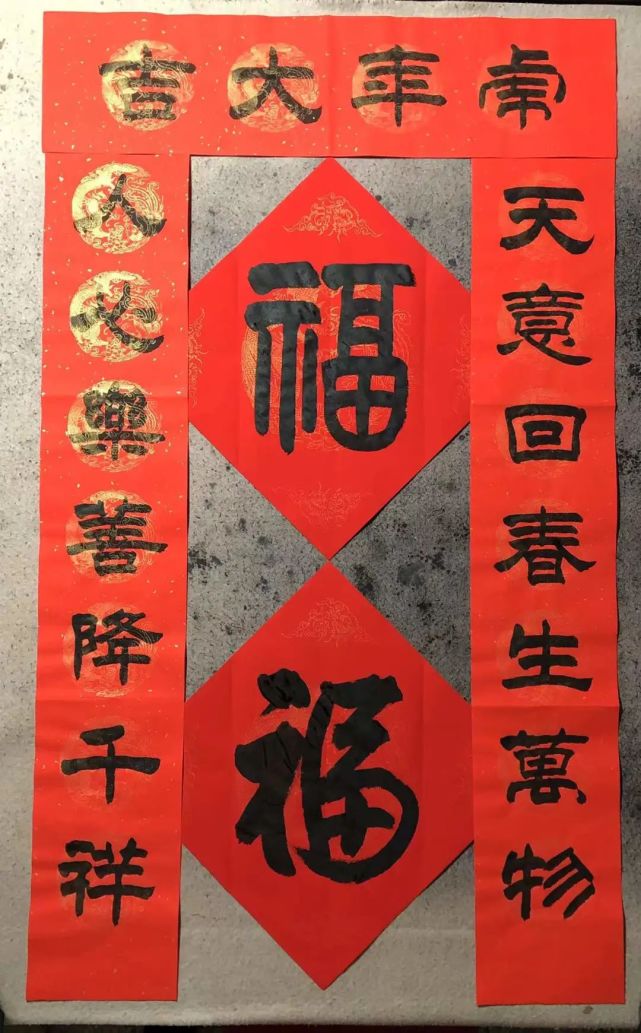 虎年大吉
天意回春生萬物
人心樂善降千祥
福
福